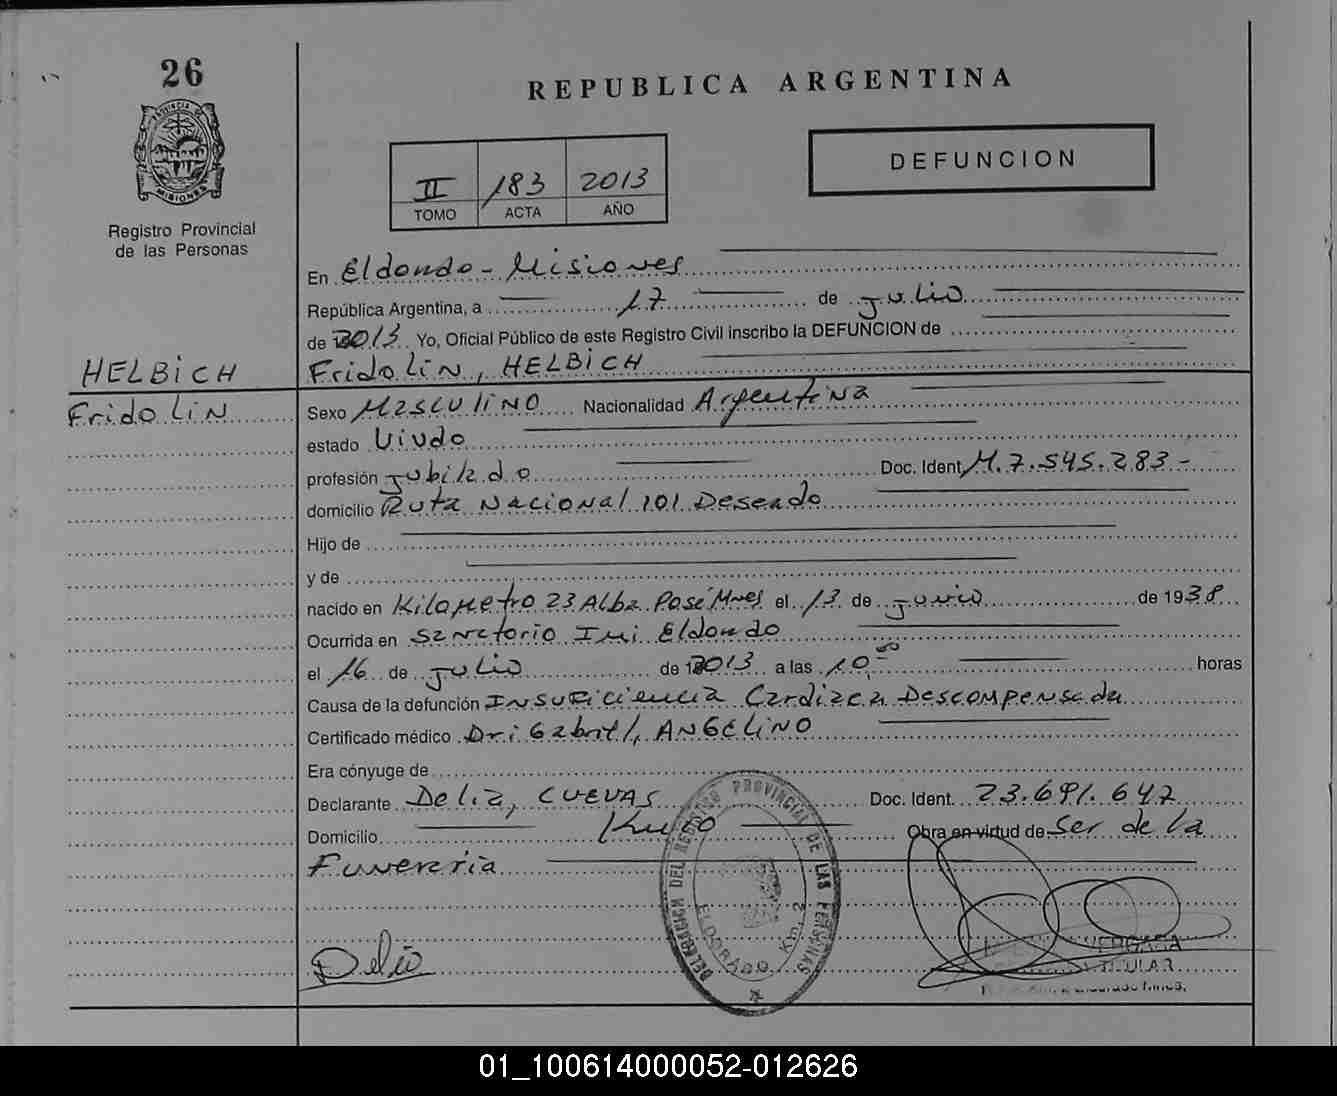 26
REPUBLICA ARGENTINA
PROVINCIA DE
MISIONES
Registro Provincial
de las Personas
II 183 2013
TOMO ACTA AÑO
DEFUNCION
En Eldorado - Misiones
República Argentina, a 17 de julio
de 2013 Yo, Oficial Público de este Registro Civil inscribo la DEFUNCION de
HELBICH
FridoLiN, HELBiCH
FridoLiN
Sexo Masculino Nacionalidad Argentina
estado Viudo
profesión Jubilado Doc. Ident. M.7.545.283-
domicilio Ruta Nacional 101 Deseado
Hijo de
y de
nacido en Kilometro 23 Alba Posé Mnes el 13 de junio de 1938
Ocurrida en Sanatorio Eldorado
el 16 de julio de 2013 a las 10 00 horas
Causa de la defunción Insuficiencia Cardiaca Descompensada
Certificado médico Dr: Gabriel, ANGELiNO
Era cónyuge de
Declarante Delia, CUEVAS Doc. Ident. 23.691.647
Domicilio Obra en virtud de Ser de la
Funeraria
DELEGACION DEL REGISTRO PROVINCIAL DE LAS PERSONAS
ELDORADO Km. 2
VERGARA
TITULAR
01_100614000052-012626